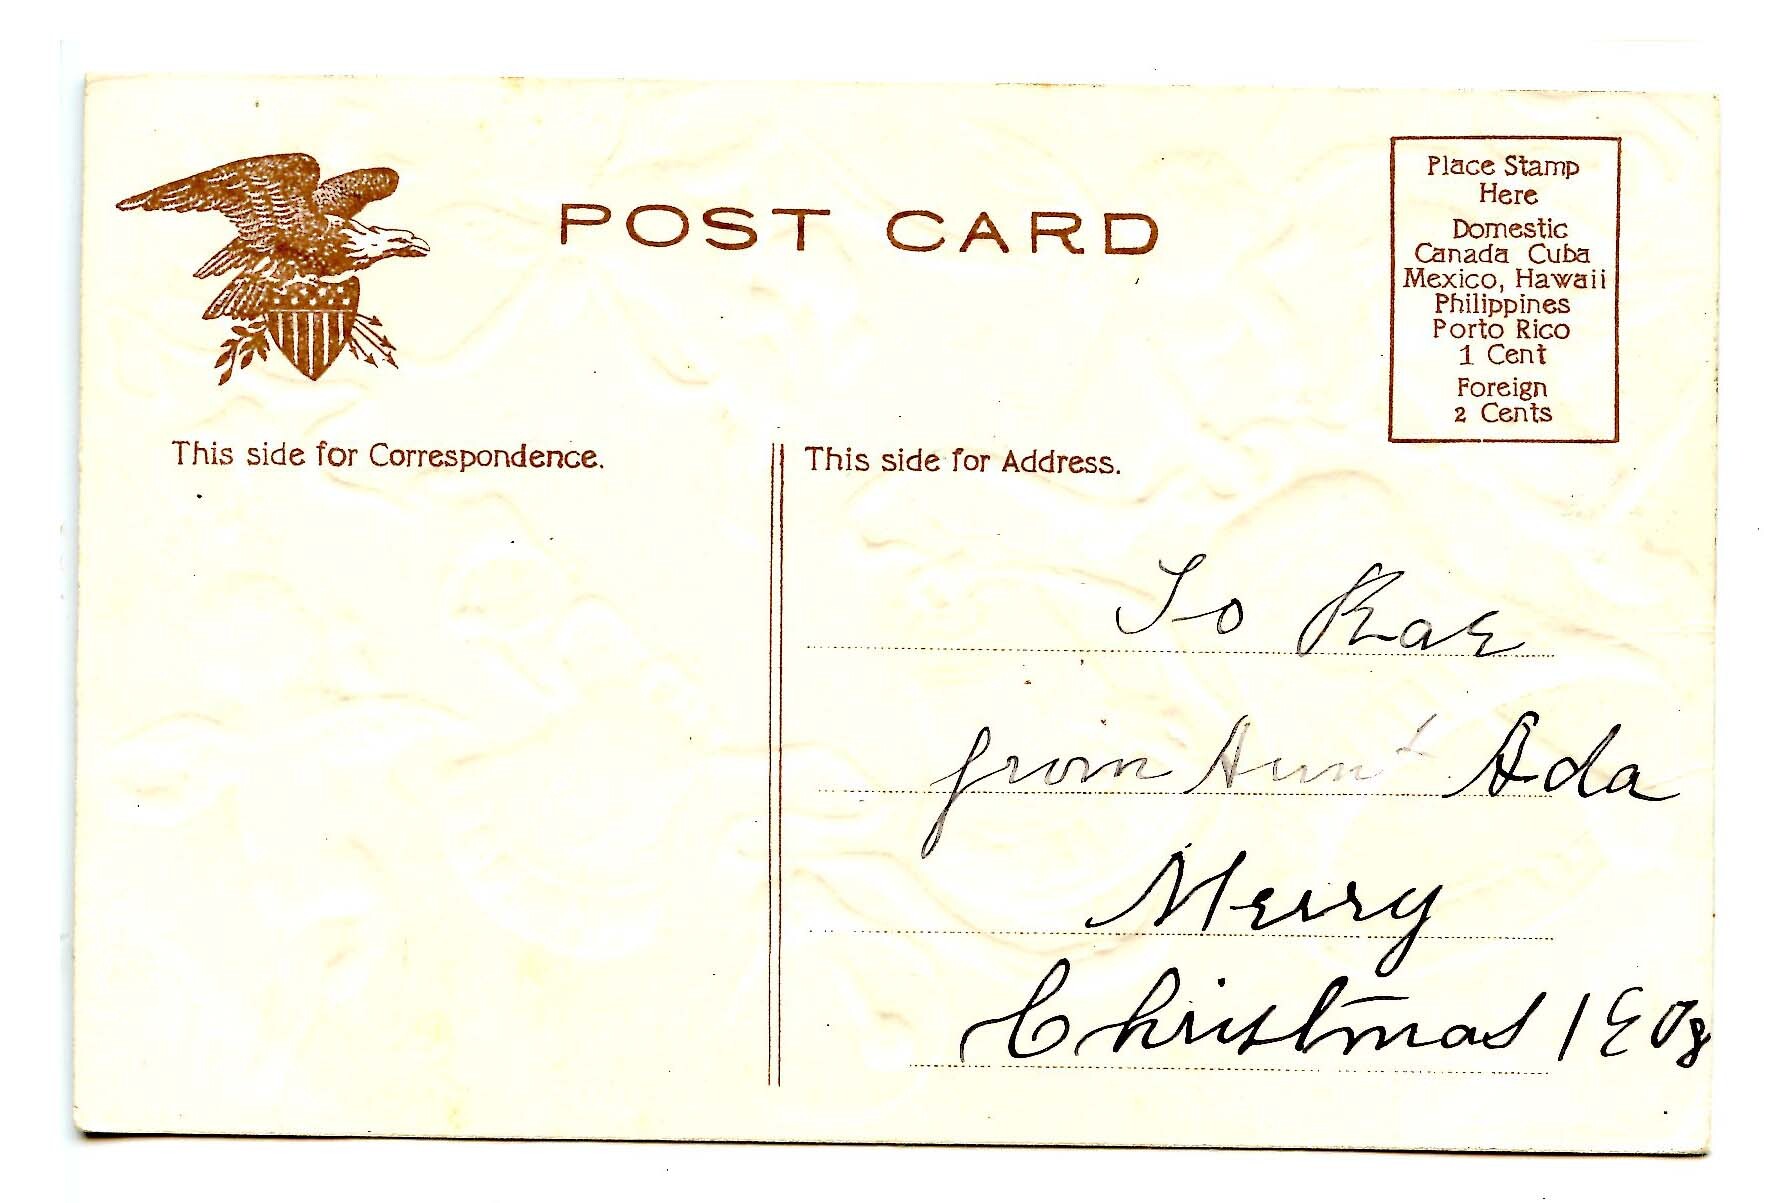 POST CARD
Place Stamp
Here
Domestic
Canada Cuba
Mexico, Hawaii
Philippines
Porto Rico
1 Cent
Foreign
2 Cents
This side for Correspondence.
This side for Address.
To Rae
from Aunt Ada
Merry
Christmas 1908